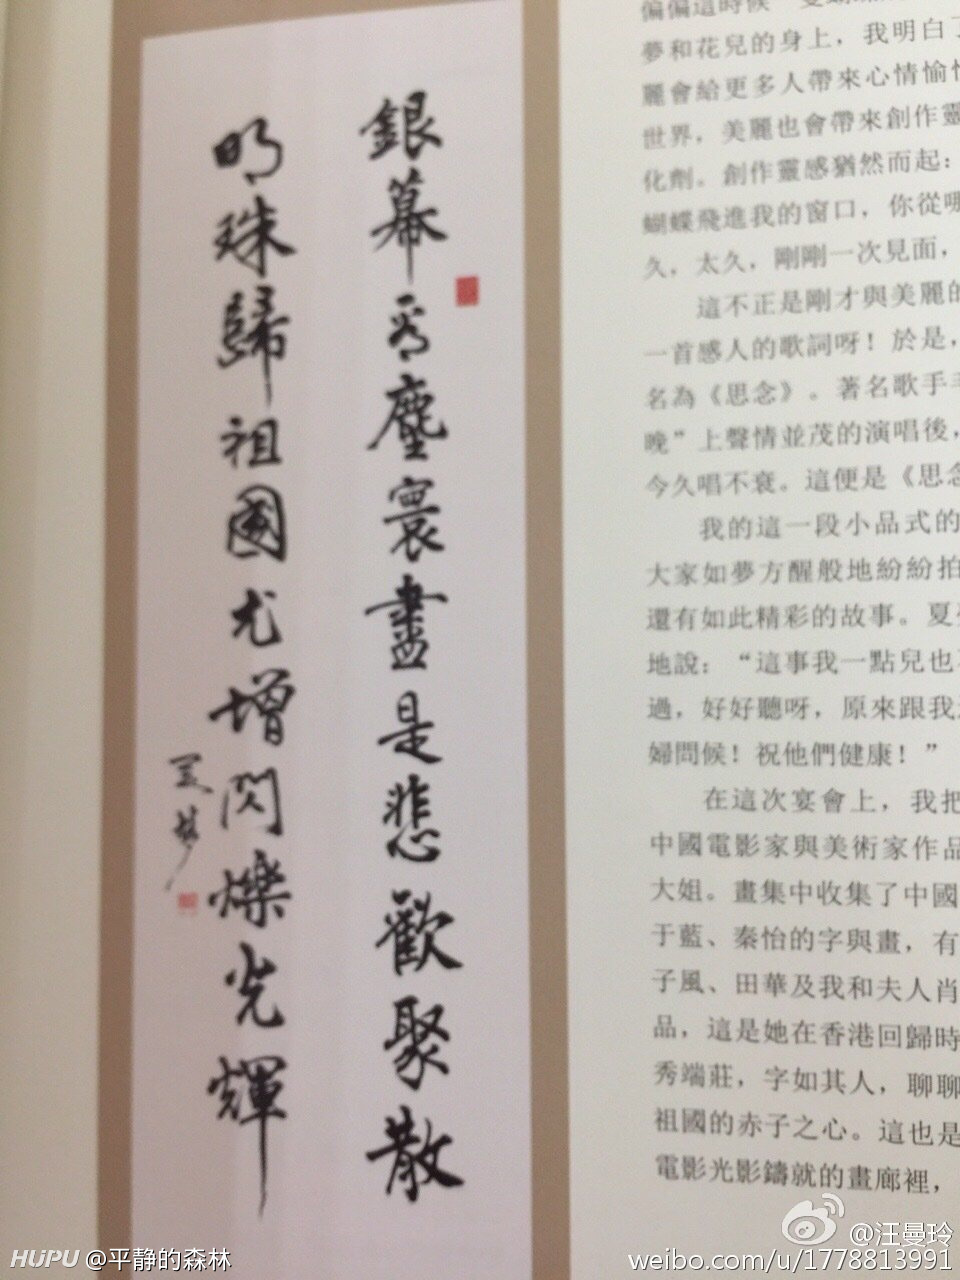 銀幕塵寰盡是悲歡聚散
明珠歸祖國尤增閃爍光輝
夏夢
偏偏這時候
夢和花兒的身上，我明白了
麗會給更多人帶來心情愉
世界，美麗也會帶來創作靈
化劑。創作靈感猶然而起：
蝴蝶飛進我的窗口，你從哪
久，太久，剛剛一次見面，
這不正是剛才與美麗的
一首感人的歌詞呀！於是，
名為《思念》。著名歌手
晚”上聲情並茂的演唱後，
今久唱不衰。這便是《思念
我的這一段小品式的
大家如夢方醒般地紛紛拍
還有如此精彩的故事。夏
地說：“這事我一點兒也
過，好好聽呀，原來跟我
婦問候！祝他們健康！”
在這次宴會上，我把
中國電影家與美術家作品
大姐。畫集中收集了中國
于藍、秦怡的字與畫，有
子風、田華及我和夫人肖
品，這是她在香港回歸時
秀端莊，字如其人，聊聊
祖國的赤子之心。這也是
電影光影鑄就的畫廊裡，
HUPU @平静的森林
@汪曼玲
weibo.com/u/1778813991